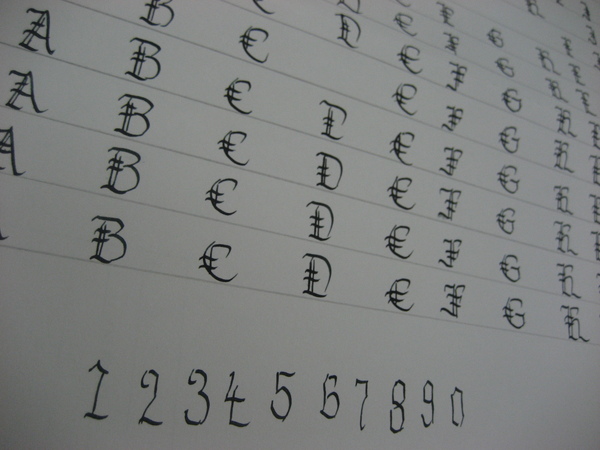 C D E F G H
B C E F G H
A B C D E F G H
A B C D E F G H
A B C D E F G H
B C D E F G H
1 2 3 4 5 6 7 8 9 0